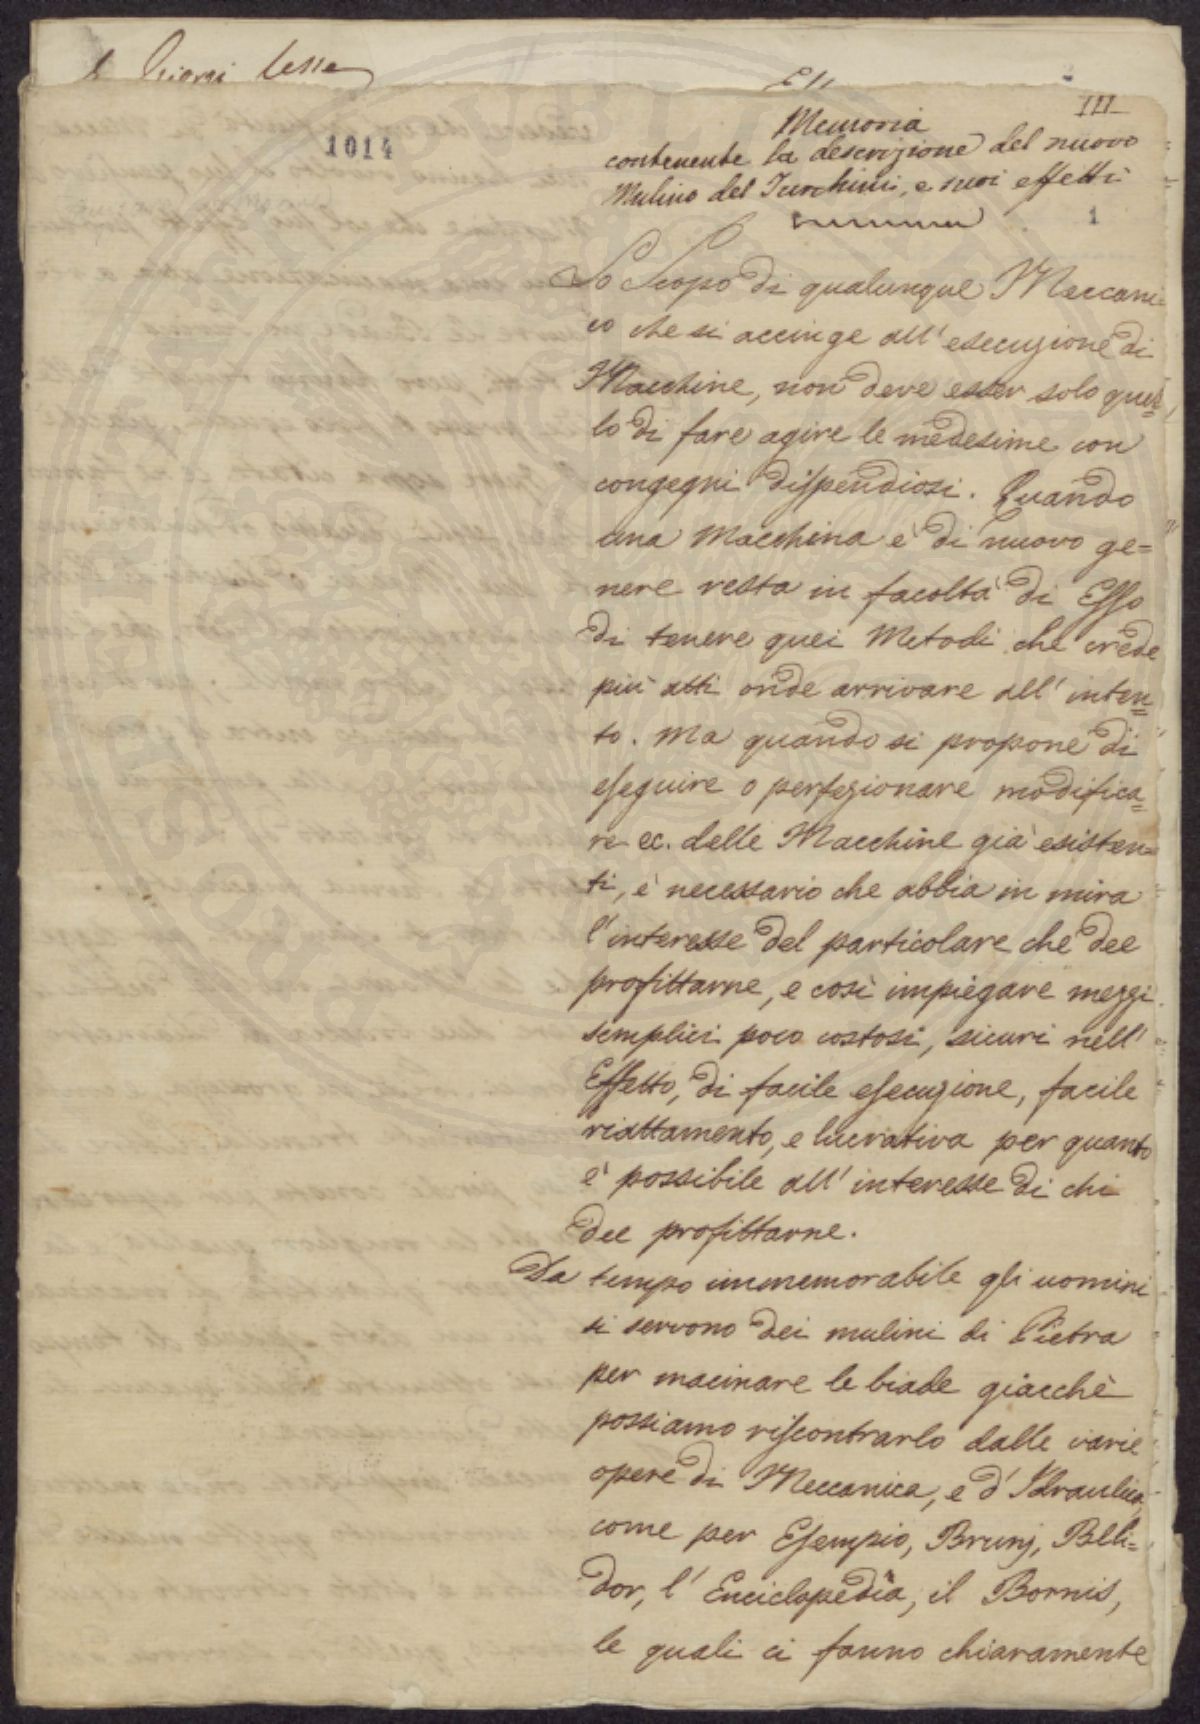 III
1014
Memoria
contenente la descrizione del nuovo
Mulino del Turchini, e suoi effetti
1
Lo Scopo di qualunque Meccani=
co che si accinge all' esecuzione di
Macchine, non deve esser solo quel=
lo di fare agire le medesime con
congegni dispendiosi. Quando
una Macchina è di nuovo ge=
nere resta in facoltà di Esso
di tenere quei Metodi che crede
più atti onde arrivare all' inten=
to. Ma quando si propone di
eseguire o perfezionare modifica=
re ec. delle Macchine già esisten=
ti, è necessario che abbia in mira
l'interesse del particolare che dee
profittarne, e così impiegare mezzi
semplici poco costosi, sicuri nell'
Effetto, di facile esecuzione, facile
riattamento, e lucrativa per quanto
è possibile all' interesse di chi
dee profittarne.
Da tempo immemorabile gli uomini
si servono dei mulini di Pietra
per macinare le biade giacchè
possiamo riscontrarlo dalle varie
opere di Meccanica, e d' Idraulica
come per Esempio, Brunj, Beli=
dor, l' Enciclopedia, il Bornis,
le quali ci fanno chiaramente